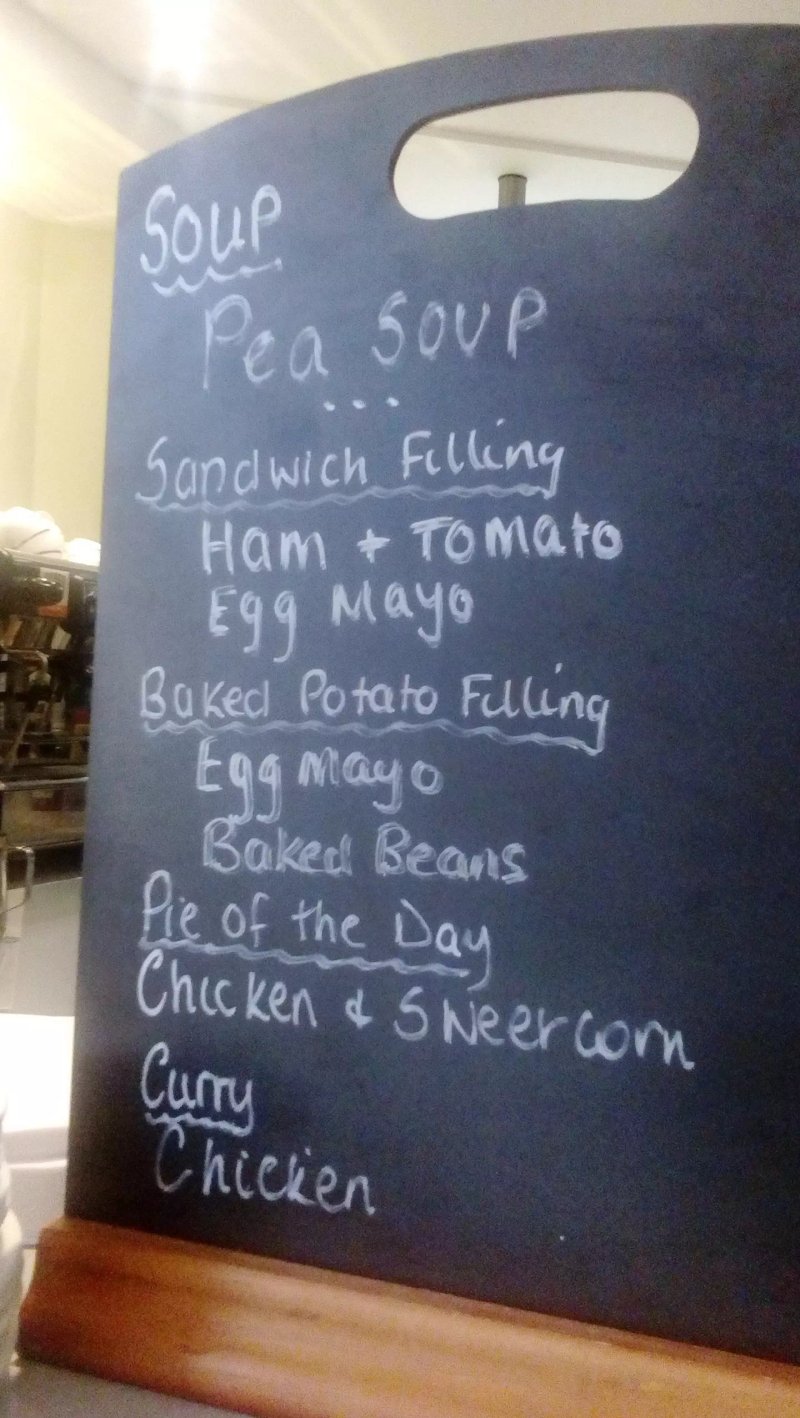 Soup
Pea Soup
...
Sandwich Filling
Ham + Tomato
Egg Mayo
Baked Potato Filling
Egg Mayo
Baked Beans
Pie of the Day
Chicken & Sweetcorn
Curry
Chicken